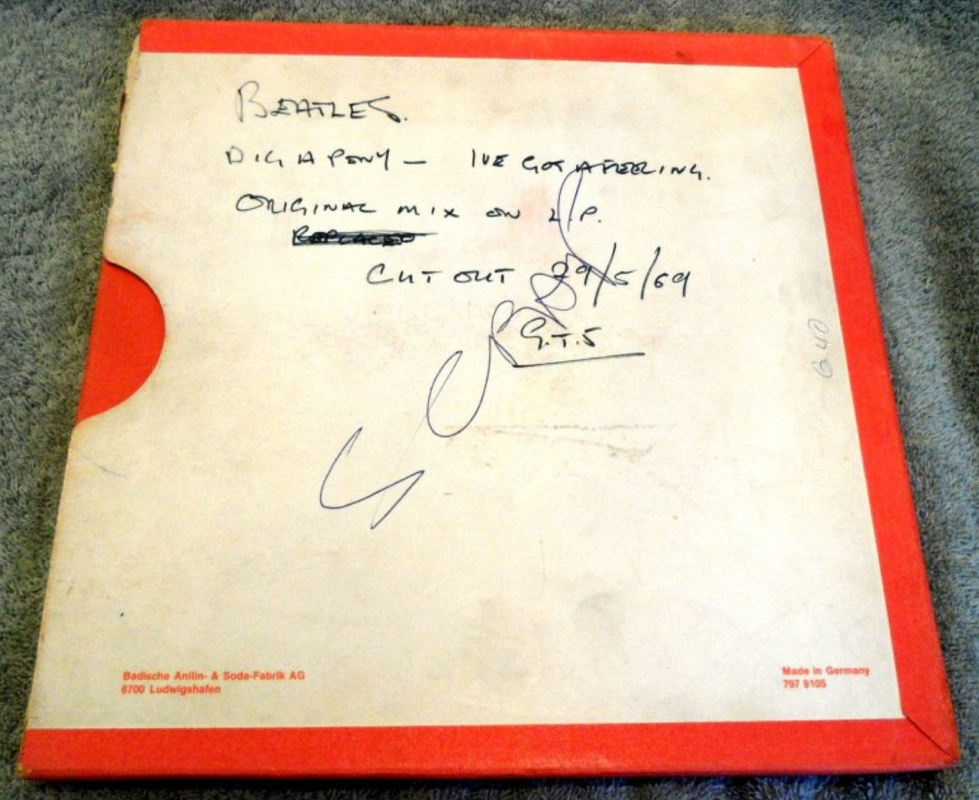 BEATLES.
DIG A PONY — IVE GOT A FEELING.
ORIGINAL MIX ON L.P.
REPLACED
CUT OUT 29/5/69
G.T.S
Badische Anilin- & Soda-Fabrik AG
6700 Ludwigshafen
Made in Germany
797 9105